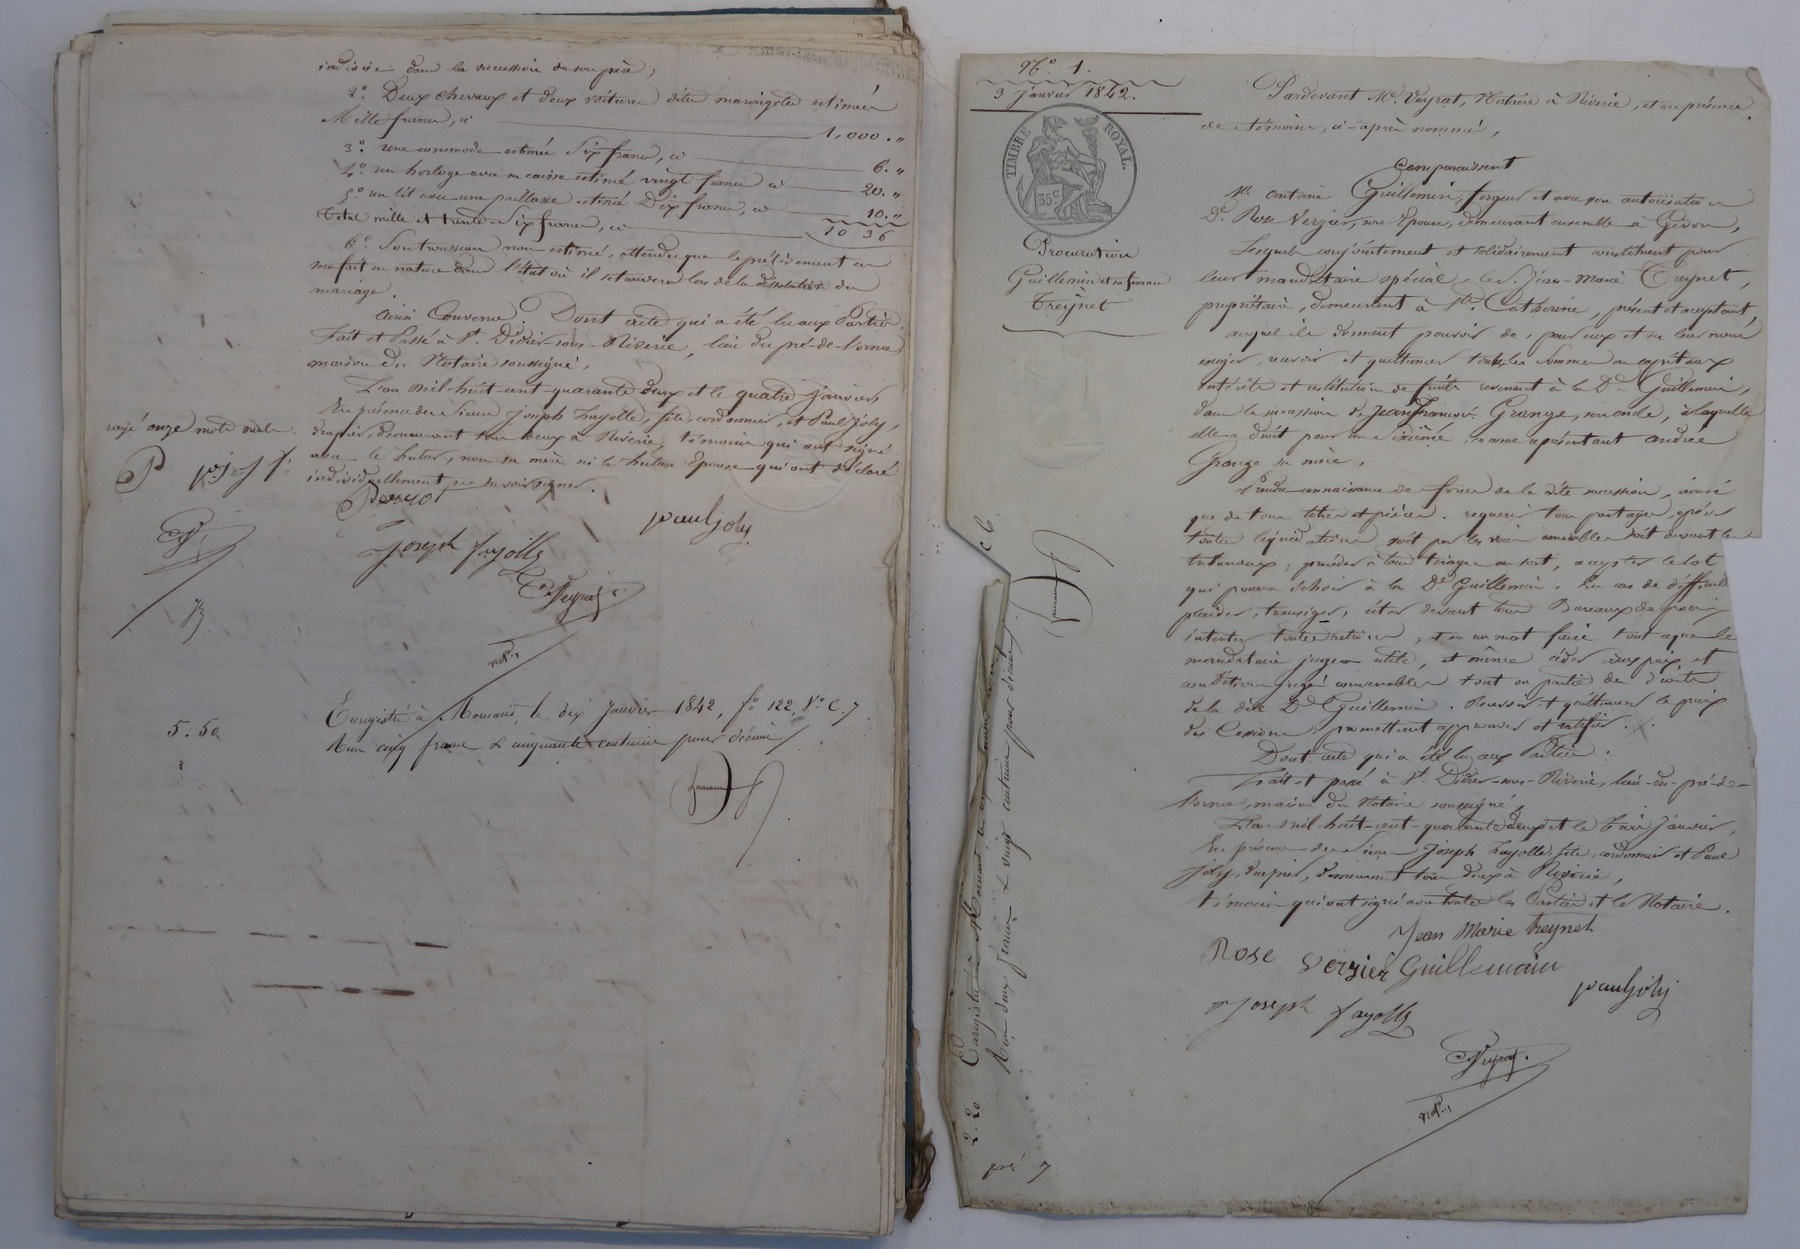 indivise dans la succession de son père ;
2°. Deux chevaux et deux voitures dites maringotes estimés
Mille francs, ci 1,000. "
3°. une commode estimée Six francs, ci 6. "
4°. un horloge avec sa caisse estimé vingt francs ci 20. "
5°. un lit avec une paillasse estimé Dix francs, ci 10. "
Total mille et trente-Six francs, ci 1036
6°. Son trousseau non estimé, attendu que le prélèvement en
sera fait en nature dans l'état où il se trouvera lors de la dissolution du
mariage.
Ainsi Convenu. Dont acte qui a été lu aux Parties.
Fait et Passé à St. Didier-sous-Riverie, lieu du pré-de-
maison du Notaire soussigné,
L'an mil-huit-cent-quarante deux et le quatre janvier
En présence des Sieurs Joseph Fayolle, fils, cordonnier, et Paul Joly,
drapier, demeurant tous deux à Riverie, témoins qui ont signé
avec le futur, non sa mère ni la future Epouse qui ont déclaré
individuellement ne savoir signer.
rayé onze mots nuls.
paul joly
Joseph fayolle
Veyrat
Not.
5. 50
Enregistré à Mornant, le dix Janvier 1842, f° 122, V° C. 7.
Reçu cinq francs & cinquante centimes pour décime
N° 1.
3 Janvier 1842.
TIMBRE ROYAL
35 c
Procuration
Guillemin et sa femme
Treynet
Pardevant Me. Veyrat, Notaire à Riverie, et en présence
de témoins, ci-après nommés,
Comparaissent
Sr. Antoine Guillemin, forgeur et avec son autorisation
De. Rose Verzier, son Epouse, demeurant ensemble à Givors,
Lesquels conjointement et solidairement constituent pour
leur mandataire spécial, le Sr. Jean-Marie Treynet,
propriétaire, demeurant à Ste. Catherine, présent et acceptant,
auquel ils donnent pouvoir de, pour eux et en leur nom
exiger, recevoir et quittancer toutes les sommes en capitaux
intérêts et restitution de fruits revenant à la De. Guillemin,
dans la succession de Jean François Grange, son oncle, à laquelle
elle a droit pour un sixième, comme représentant Andrée
Grange sa mère,
Prendre connaissance des forces de la dite succession, ainsi
que de tous titres et pièces. requérir tous partages, opérer
toute liquidation soit par les voies amiables soit devant les
tribunaux ; procéder à tous tirages au sort, accepter le lot
qui pourra échoir à la De. Guillemin. En cas de difficulté
plaider, transiger, citer devant tous Bureaux de paix,
intenter toutes actions, et en un mot faire tout ce que le
mandataire jugera utile, et même céder aux prix et
conditions jugés convenables tout ou partie des droits
de la dite De. Guillemin. Recevoir et quittancer le prix
des Cessions, promettant approuver et ratifier.
Dont acte qui a été lu aux Parties :
Fait et passé à St. Didier-sous-Riverie, lieu-du-pré-de-
maison du Notaire soussigné,
L'an mil-huit-cent-quarante deux et le trois janvier,
En présence des sieurs Joseph Fayolle fils, cordonnier et Paul
Joly, drapier, demeurant tous deux à Riverie,
témoins qui ont signé avec toutes les Parties et le Notaire.
Jean Marie treynet
Rose verzier Guillemain
pauljoly
Joseph fayolle
Veyrat
Not.
Enregistré à Mornant
Reçu deux francs & vingt centimes pour décime
2. 20